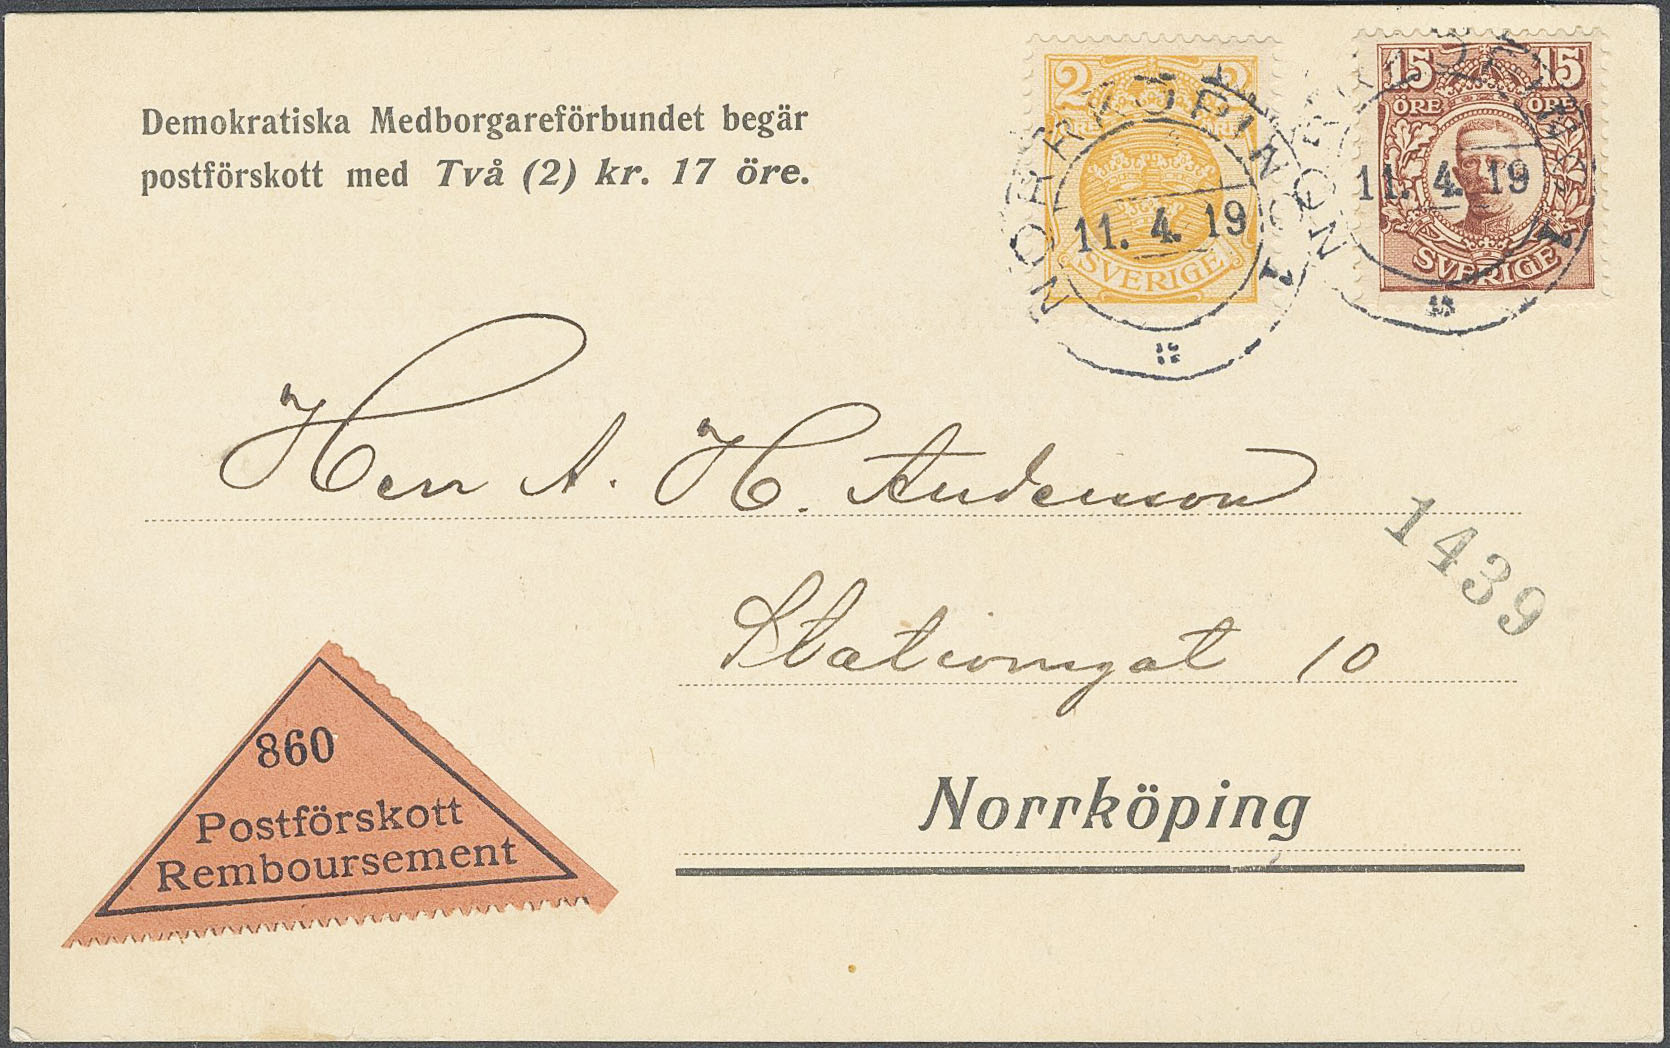 Demokratiska Medborgareförbundet begär
postförskott med Två (2) kr. 17 öre.
2
ÖRE
SVERIGE
15 15
ÖRE ÖRE
SVERIGE
NORRKÖPING 1
11. 4. 19
NORRKÖPING 1
11. 4. 19
Herr A. H. Anderson
1439
Stationsgat 10
Norrköping
860
Postförskott
Remboursement